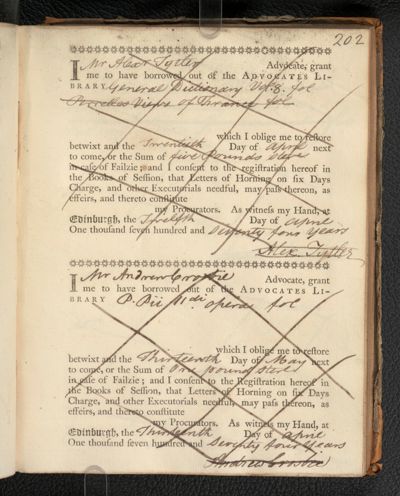 202
I Mr Alexr Tytler Advocate, grant
me to have borrowed out of the ADVOCATES LI-
BRARY General Dictionary Vol. 8. fol
View of France fol
which I oblige me to reſtore
betwixt and the Twentieth Day of April next
to come, or the Sum of five Pounds
in caſe of Failzie; and I conſent to the regiſtration hereof in
the Books of Seſſion, that Letters of Horning on ſix Days
Charge, and other Executorials needful, may paſs thereon, as
effeirs, and thereto conſtitute
my Procurators. As witneſs my Hand, at
Edinburgh, the Twelfth Day of April
One thouſand ſeven hundred and Seventy four Years
Alex. Tytler
I Mr Andrew Crosbie Advocate, grant
me to have borrowed out of the ADVOCATES LI-
BRARY P. Pii 11di opera fol
which I oblige me to reſtore
betwixt and the Thirteenth Day of May next
to come, or the Sum of One pound Sterl
in caſe of Failzie; and I conſent to the Regiſtration hereof in
the Books of Seſſion, that Letters of Horning on ſix Days
Charge, and other Executorials needful, may paſs thereon, as
effeirs, and thereto conſtitute
my Procurators. As witneſs my Hand, at
Edinburgh, the Thirteenth Day of April
One thouſand ſeven hundred and Seventy four Years
Andrew Crosbie